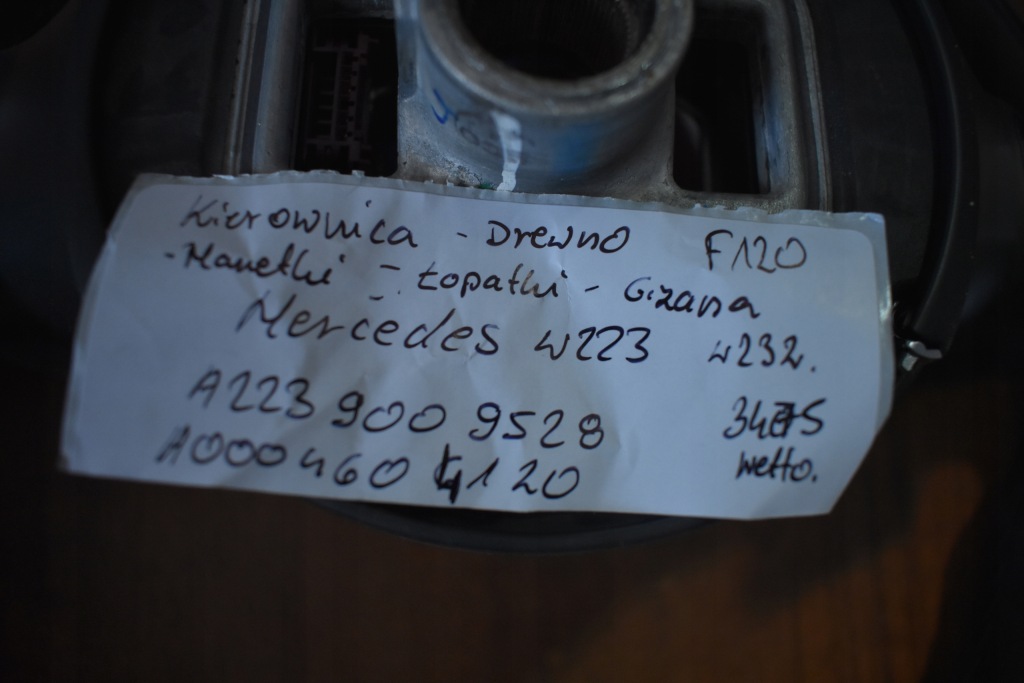 Kierownica - Drewno F120
- Manetki - Łopatki - Grzana
Mercedes W223 W232.
A223 900 9528
A000 460 4120
netto.